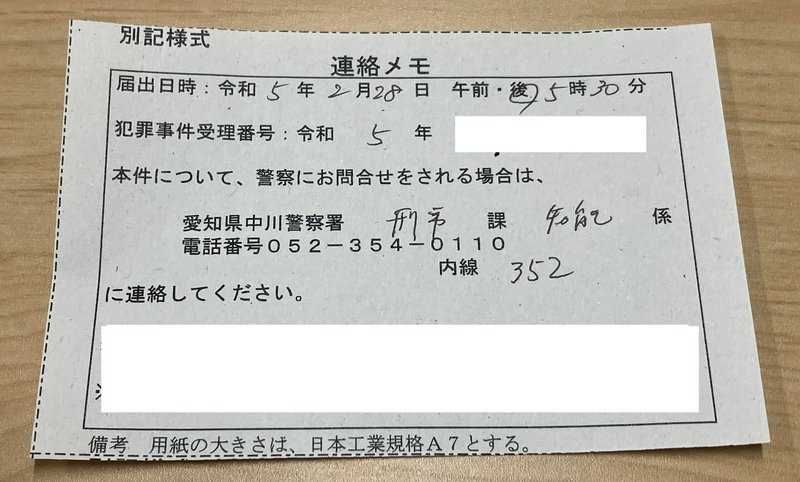 別記様式
連絡メモ
届出日時：令和 5 年 2 月 28 日 午前・後 5 時 30 分
犯罪事件受理番号：令和 5 年
本件について、警察にお問合せをされる場合は、
愛知県中川警察署 刑事 課 知能 係
電話番号０５２－３５４－０１１０
内線 352
に連絡してください。
※
備考 用紙の大きさは、日本工業規格Ａ７とする。